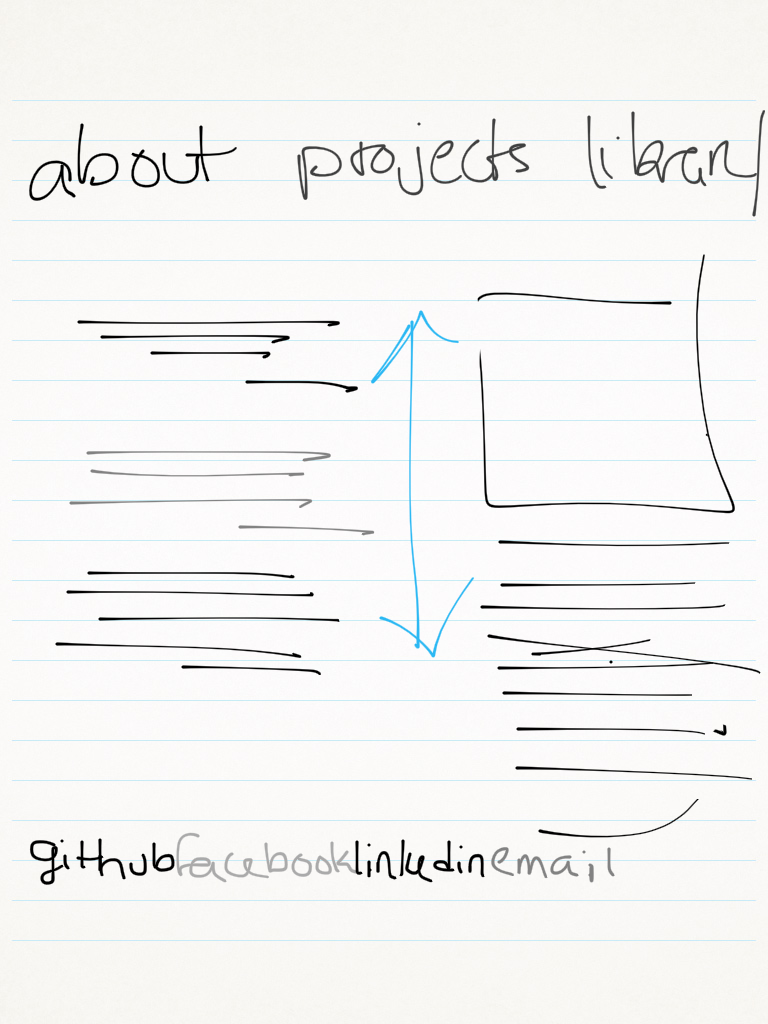 about projects library
githubfacebooklinkedinemail